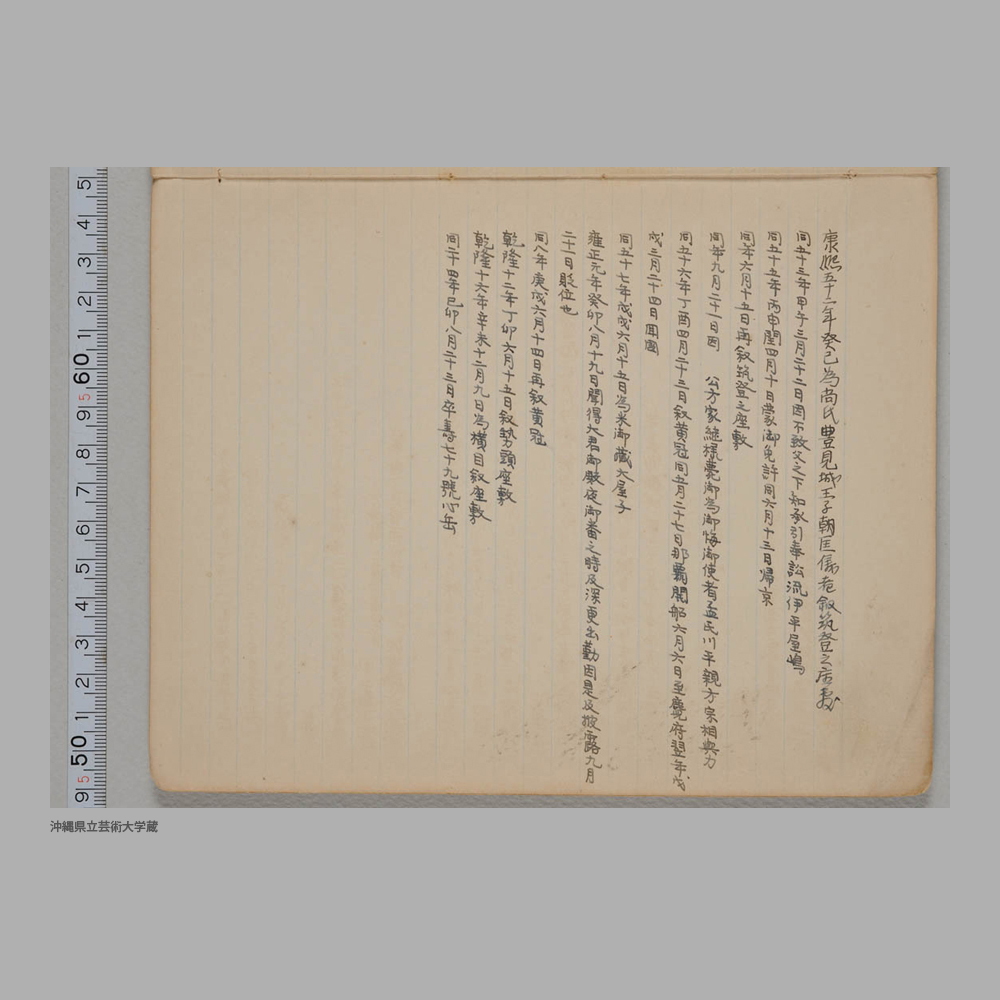 康熙五十二年癸巳為尚氏豊見城王子朝匡儀者叙筑登之座敷
同五十三年甲午三月二十二日因不致父之下知承引奉訟流伊平屋嶋
同五十五年丙申閏四月十日蒙御免許同六月十三日帰京
同年六月十五日再叙筑登之座敷
同年九月二十一日因 公方家継様薨御為御悔御使者孟氏川平親方宗相與力
同五十六年丁酉四月二十三日叙黄冠同五月二十七日那覇開船六月六日至麑府翌年戊
戌二月二十四日回國
同五十七年戊戌六月十五日為米御蔵大屋子
雍正元年癸卯八月十九日聞得大君御殿夜御番之時及深更出勤因是及披露九月
二十一日貶位也
同八年庚戌六月十四日再叙黄冠
乾隆十二年丁卯六月十五日叙勢頭座敷
乾隆十六年辛未十二月九日為横目叙座敷
同二十四年己卯八月二十三日卒壽七十九號心岳
沖縄県立芸術大学蔵